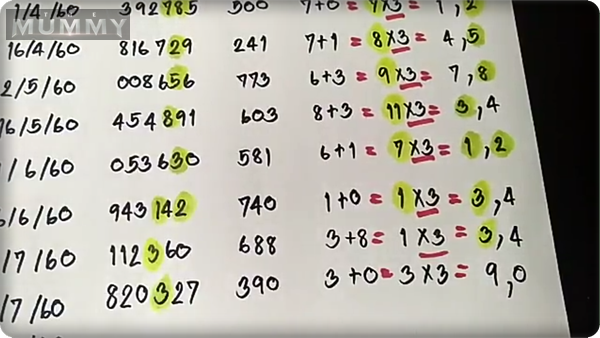 MUMMY
1/4/60 392785 500 7+0= 7×3= 1,2
16/4/60 816729 241 7+1= 8×3= 4,5
2/5/60 008656 773 6+3= 9×3= 7,8
16/5/60 454891 603 8+3= 11×3= 3,4
1/6/60 053630 581 6+1= 7×3= 1,2
6/6/60 943142 740 1+0= 1×3= 3,4
/7/60 112360 688 3+8= 1×3= 3,4
/7/60 820327 390 3+0= 3×3= 9,0